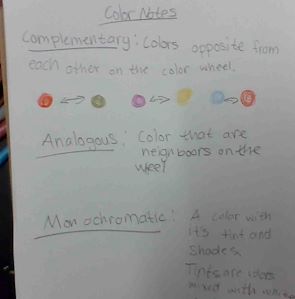 Color Notes
Complementary: Colors opposite from
each other on the color wheel.
Analogous: Color that are
neighboors on the
wheel
Monochromatic: A color with
it's tint and
shades
Tints are colors
mixed with white